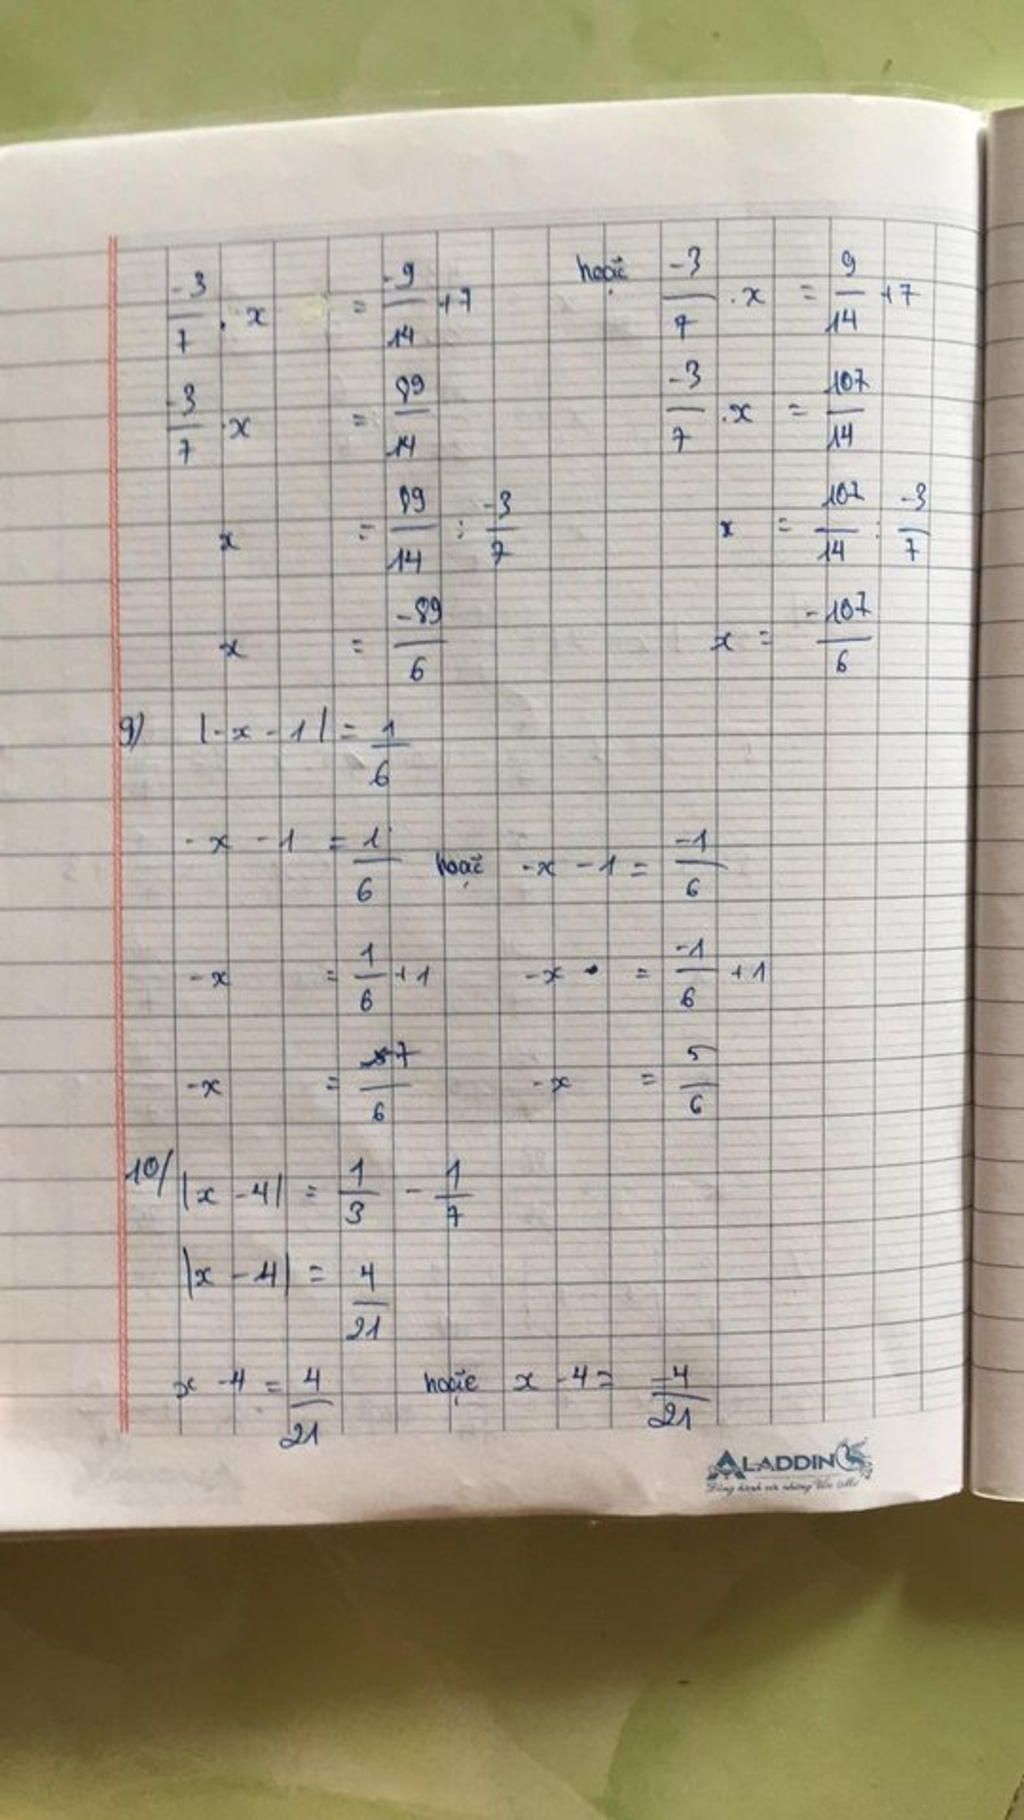 -3/7 . x = -9/14 + 7 hoặc -3/7 . x = 9/14 + 7
-3/7 . x = 89/14 -3/7 . x = 107/14
x = 89/14 : -3/7 x = 107/14 : -3/7
x = -89/6 x = -107/6
9) |-x - 1| = 1/6
-x - 1 = 1/6 hoặc -x - 1 = -1/6
-x = 1/6 + 1 -x = -1/6 + 1
-x = 7/6 -x = 5/6
10/ |x - 4| = 1/3 - 1/7
|x - 4| = 4/21
x - 4 = 4/21 hoặc x - 4 = -4/21
ALADDIN